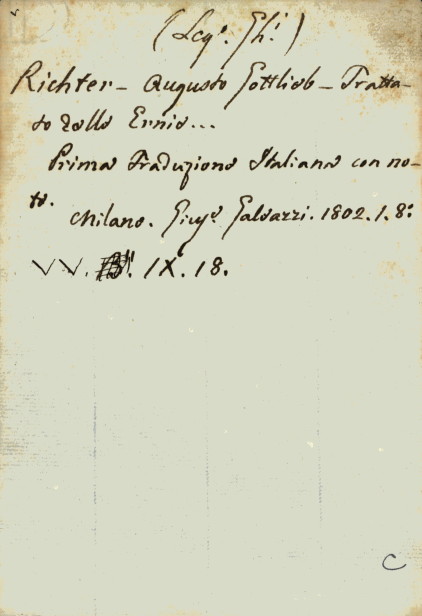 (Leg. Gh.)
Richter - Augusto Gottlieb - Tratta-
to delle Ernie...
Prima Traduzione Italiana con no-
te.
Milano. Giuse. Galeazzi. 1802. 1. 8:
VV. IX. 18.
C